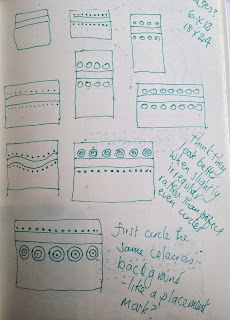 sizes?
6 x 12
18 x 24
I think they
look better
when slightly
irregular
rather than perfect
even circles
first circle the
same colour as
background
- like a placement
mark?